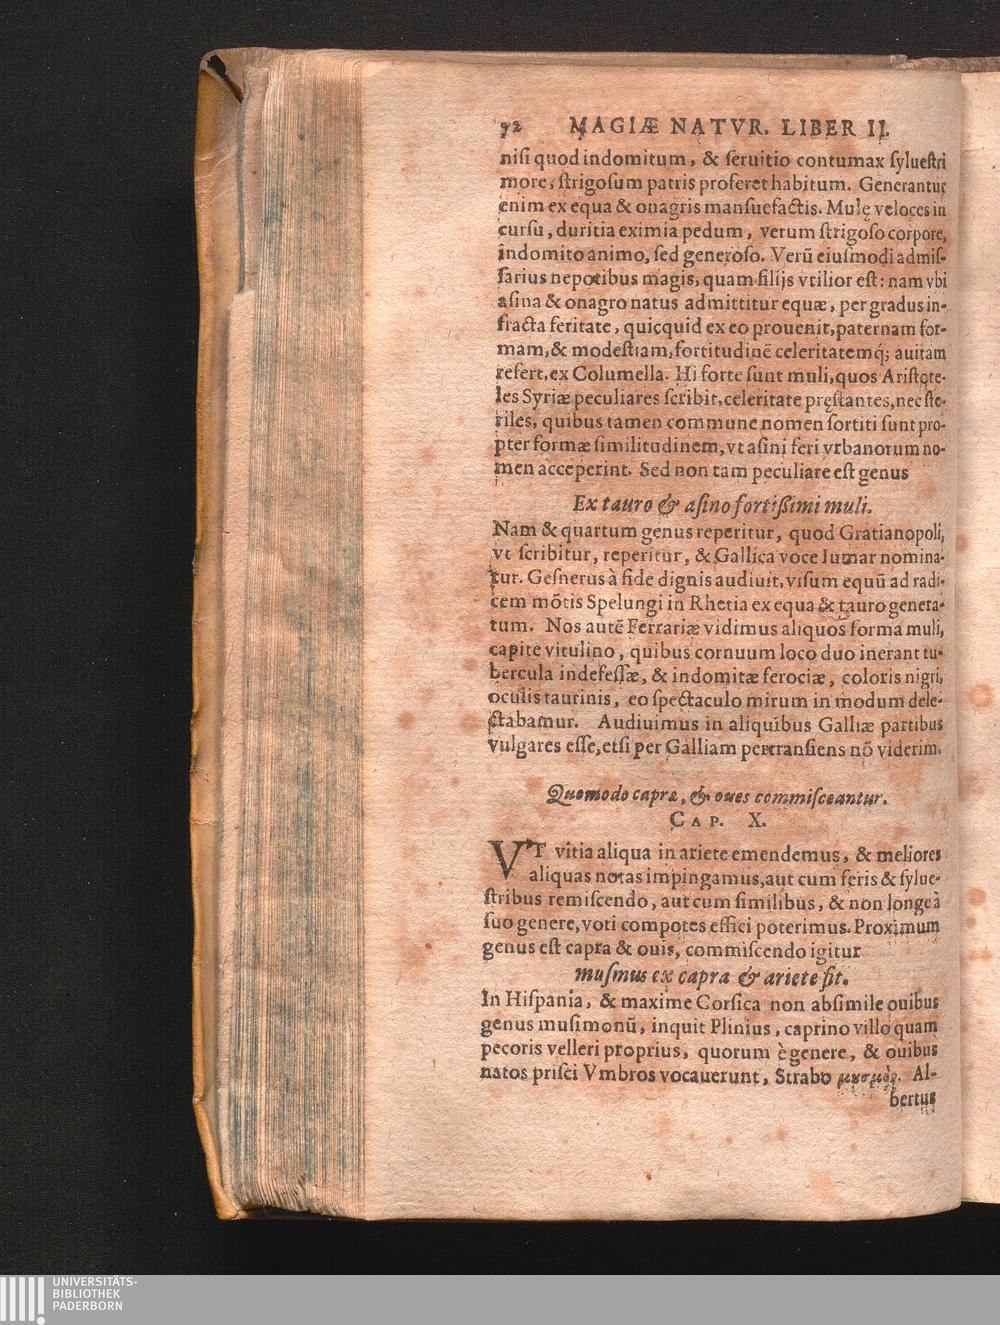 92 MAGIÆ NATVR. LIBER II.
niſi quod indomitum, & ſeruitio contumax ſylueſtri
more, ſtrigoſum patris proferet habitum. Generantur
enim ex equa & onagris manſuefactis. Mulę veloces in
curſu, duritia eximia pedum, verum ſtrigoſo corpore,
indomito animo, ſed generoſo. Verũ eiuſmodi admiſ-
ſarius nepotibus magis, quam filijs vtilior eſt: nam vbi
aſina & onagro natus admittitur equæ, per gradus in-
fracta feritate, quicquid ex eo prouenit, paternam for-
mam, & modeſtiam, fortitudinẽ celeritatemq́; auitam
refert, ex Columella. Hi forte ſunt muli, quos Ariſtote-
les Syriæ peculiares ſcribit, celeritate pręſtantes, nec ſte-
riles, quibus tamen commune nomen ſortiti ſunt pro-
pter formæ ſimilitudinem, vt aſini feri vrbanorum no-
men acceperint. Sed non tam peculiare eſt genus
Ex tauro & aſino fortißimi muli.
Nam & quartum genus reperitur, quod Gratianopoli,
vt ſcribitur, reperitur, & Gallica voce Iumar nomina-
tur. Geſnerus à fide dignis audiuit, viſum equũ ad radi-
cem mõtis Spelungi in Rhetia ex equa & tauro genera-
tum. Nos autẽ Ferrariæ vidimus aliquos forma muli,
capite vitulino, quibus cornuum loco duo inerant tu-
bercula indefeſſæ, & indomitæ ferociæ, coloris nigri,
oculis taurinis, eo ſpectaculo mirum in modum dele-
ctabamur. Audiuimus in aliquibus Galliæ partibus
vulgares eſſe, etſi per Galliam pertranſiens nõ viderim.
Quomodo capra, & oues commiſceantur.
CAP. X.
VT vitia aliqua in ariete emendemus, & meliores
aliquas notas impingamus, aut cum feris & ſylue-
ſtribus remiſcendo, aut cum ſimilibus, & non longe à
ſuo genere, voti compotes effici poterimus. Proximum
genus eſt capra & ouis, commiſcendo igitur
muſmus ex capra & ariete fit.
In Hiſpania, & maxime Corſica non abſimile ouibus
genus muſimonũ, inquit Plinius, caprino villo quam
pecoris velleri proprius, quorum è genere, & ouibus
natos priſci Vmbros vocauerunt, Strabo Al-
bertus
UNIVERSITÄTS-
BIBLIOTHEK
PADERBORN